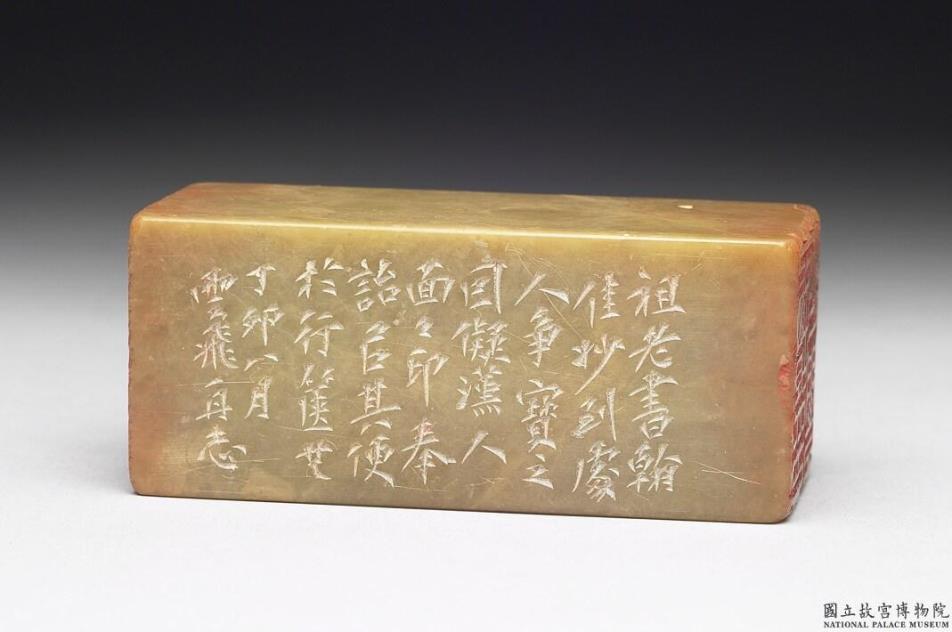 祖老書翰
佳妙到處
人爭寶之
因儗漢人
面〻印奉
詒㠯其便
於行篋
丁卯八月
雲飛再志
國立故宮博物院
NATIONAL PALACE MUSEUM